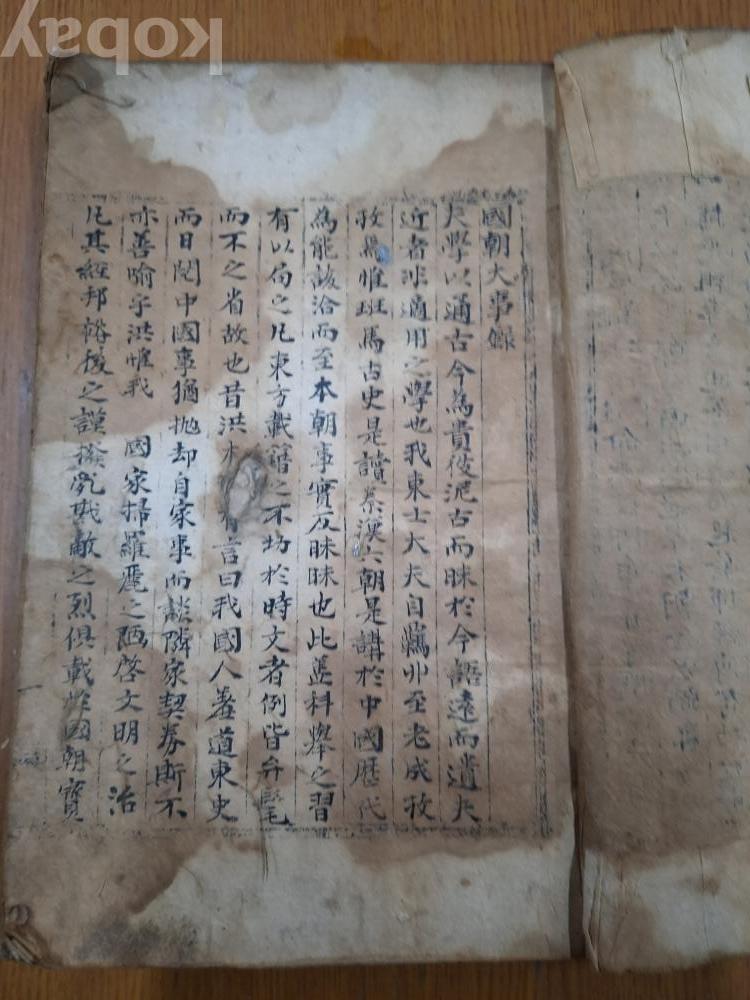 kobay
國朝大事錄
夫學以通古今為貴彼泥古而昧於今語遠而遺夫
近者非適用之學也我東士大夫自觿丱至老成孜
孜焉惟班馬古史是讀秦漢六朝是講於中國歷代
為能該洽而至本朝事實反昧昧也此盖科舉之習
有以局之凡東方載籍之不切於時文者例皆弁髦
而不之省故也昔洪 有言曰我國人羞道東史
而日閱中國事猶抛却自家事而談隣家契券斯不
亦善喻乎洪惟我 國家掃羅麗之陋啓文明之治
凡其經邦 後之謨撥亂戡敵之烈俱載於國朝寶
一